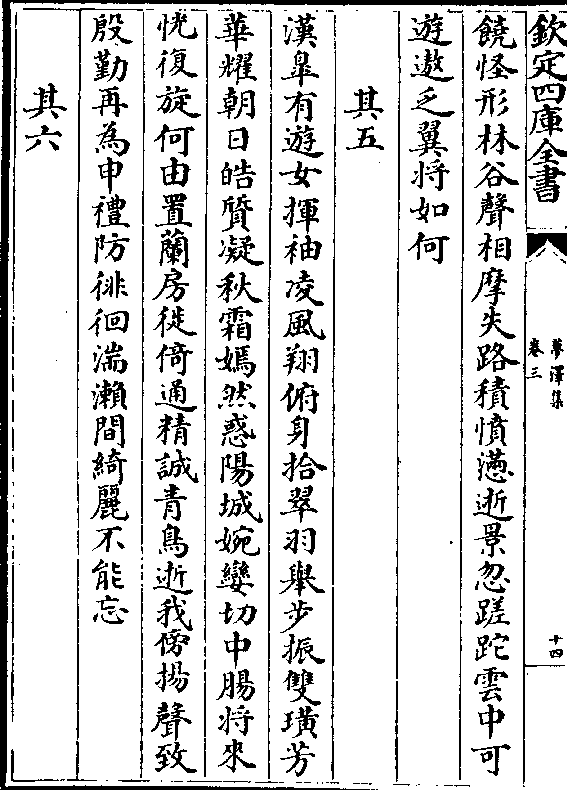 欽定四庫全書
夢澤集
卷三
十四
饒怪形林谷聲相摩失路積憤懣逝景忽蹉跎雲中可
遊遨乏翼將如何
其五
漢皐有遊女揮袖凌風翔俯身拾翠羽舉步振雙璜芳
華耀朝日皓質凝秋霜嫣然惑陽城婉孌切中腸將來
恍復旋何由置蘭房徙倚通精誠青鳥逝我傍揚聲致
殷勤再為申禮防徘徊湍瀨間綺麗不能忘
其六